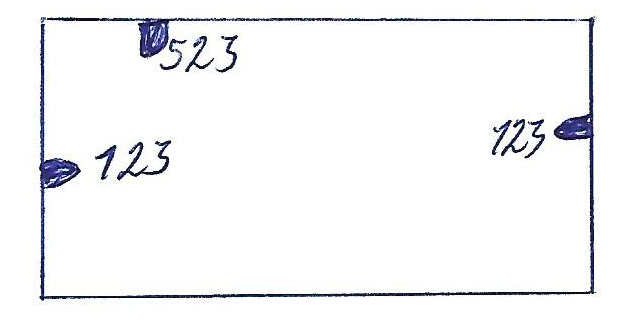 523
123
123